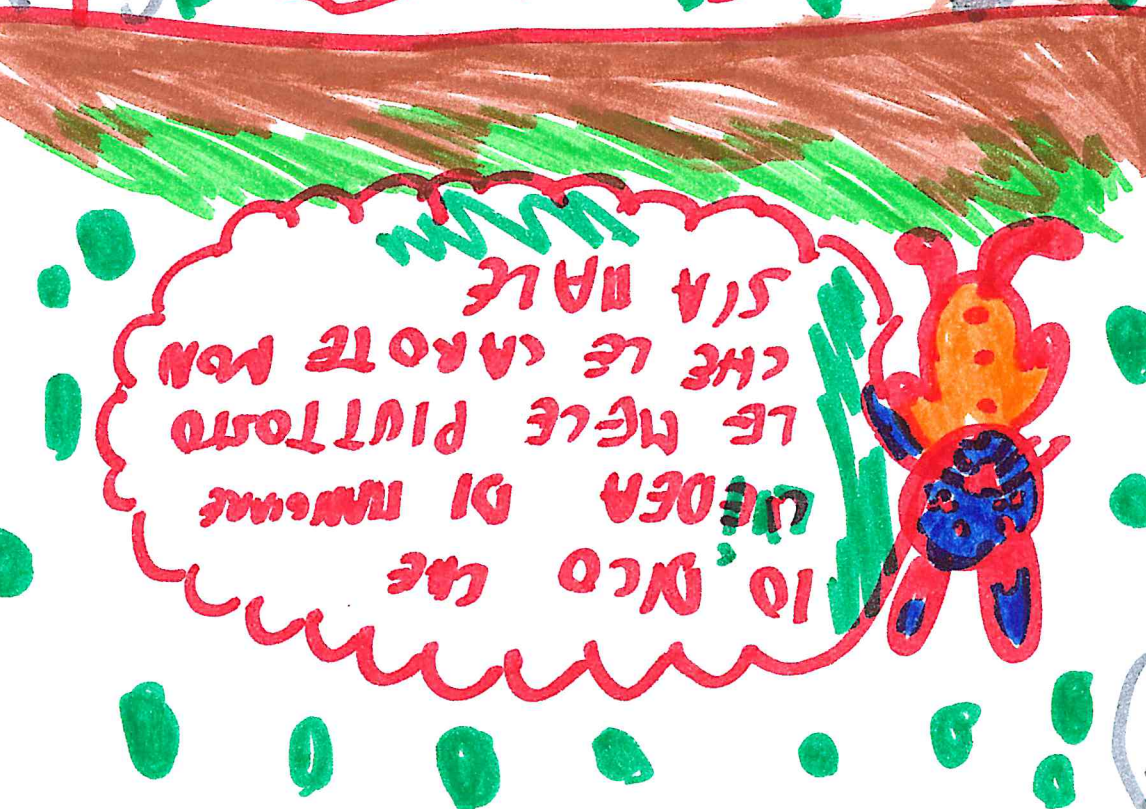 IO DICO CHE
L'IDEA DI MANGIARE
LE MELE PIUTTOSTO
CHE LE CAROTE NON
SIA MALE